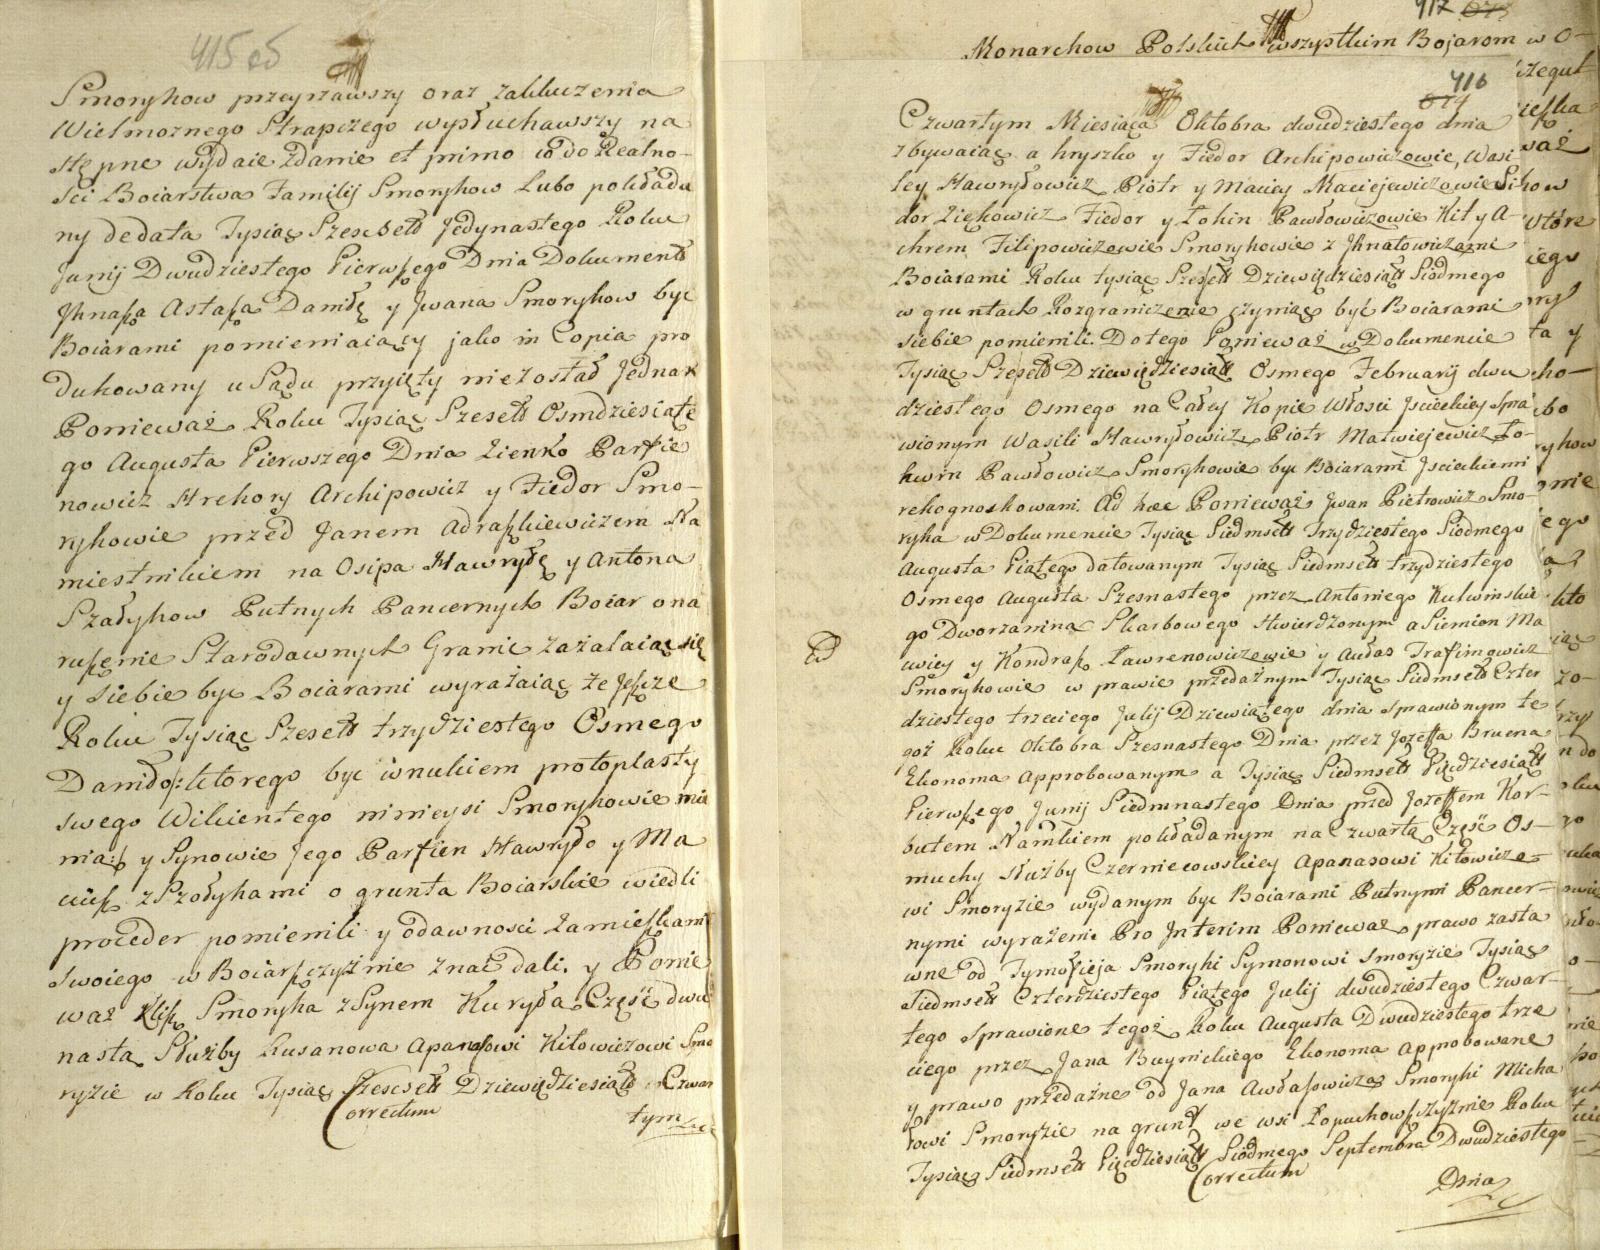 415 об
Smorykow przeyrzawszy oraz zakluczenia
Wielmoznego Strapczego wysłuchawszy na
stępne wydaie zdanie et primo co do Realno-
ści Boiarstwa Familij Smorykow Lubo pokłada
ny de data Tysiąc Szescset Jedynastego Roku
Junij Dwudziestego Pierwszego Dnia Dokument
Ihnata Astafia Daniłę y Jwana Smorykow być
Boiarami pomieniaiący jako in Copia pro
dukowany u Sądu przyięty nie został Jednak
Ponieważ Roku Tysiąc Szescset Osmdziesiąte
go Augusta Pierwszego Dnia Zienko Parfie
nowicz Hrehory Archipowicz y Fiedor Smo-
rykowie przed Janem Adraszkiewiczem Na
miestnikiem na Osipa Hawryłę y Antona
Szadykow Putnych Pancernych Boiar o na
ruszenie Starodawnych Granic zażalaiąc się
y siebie być Boiarami wyrażaiąc że Jeszcze
Roku Tysiąc Szescset trzydziestego Osmego
Daniło /: ktorego być wnukiem protoplasty
swego Wikientego ninieysi Smorykowie mie
nią :/ y Synowie Jego Parfien Hawryło y Ma
ciej z Szodykami o grunta Boiarskie wiedli
proceder pomienili y o dawnosci zamieszkania
swoiego w Boiarszczyźnie znać dali. y Ponie
waż Klisz Smoryka z Synem Kuryła Część dwu
nastą Służby Kusanowa Apanasowi Kiłowiczowi Smo
ryzie w Roku Tysiąc Szescset Dziewiędziesiąt Czwar
Correctum
tym

417
Monarchow Polskich wszystkim Bojarom w O-
416
Czwartym Miesiąca Oktobra dwudziestego dnia
zbywaiąc a hryszko y Fiedor Archipowiczowie, Wasi
ley Hawryłowicz Piotr y Maciey Maciejewiczowie Si
dor Ziękowicz Fiedor y Łokin Pawłowiczowie Kił y A-
chrem Filipowiczowie Smorykowie z Jhnatowiczami
Boiarami Roku tysiąc Szescset Dziewiędziesiąt Siodmego
w gruntach Rozgraniczenie czyniąc być Boiarami
siebie pomienili. Do tego Ponieważ w Dokumencie
Tysiąc Szescset Dziewiędziesiąt Osmego Februarij dwu
dziestego Osmego na Całey Kopie Włosci Jscieckiey Spra
wionym Wasili Hawryłowicz Piotr Matwiejewicz Ło-
kwin Pawłowicz Smorykowie być Boiarami Jscieckiemi
rekognoskowani. Ad hoc Ponieważ Jwan Pietrowicz Smo-
ryka w Dokumencie Tysiąc Siedmset Trzydziestego Siodmego
Augusta Piątego datowanym Tysiąc Siedmset trzydziestego
Osmego Augusta Szesnastego przez Antoniego Kulwinskie
go Dworzanina Skarbowego stwierdzonym a Siemion Ma
cwiey y Kondrasz Ławrenowiczowie y Audas Trafimowicz
Smorykowie w prawie przedażnym Tysiąc Siedmset Czter
dziestego trzeciego Julij Dziewiątego dnia sprawionym te
goż Roku Oktobra Szesnastego Dnia przez Jozefa Bruena
Ekonoma approbowanym a Tysiąc Siedmset Pięćdziesiąt
Pierwszego Junij Siedmnastego Dnia pred Jozeffem Kor-
butem Namkiem pokładanym na Czwartą Część Os-
muchy służby Czerniecowskiey Apanasowi Kiłowicze-
wi Smoryzie wydanym być Boiarami Putnymi Pancer-
nymi wyrażeni Pro Interim Ponieważ prawo zasta
wne od Tymofieja Smoryki Symonowi Smoryzie Tysiąc
Siedmset Czterdziestego Piątego Julij dwudziestego Czwar-
tego sprawione tegoż Roku Augusta Dwudziestego trze
ciego przez Jana Buynickiego Ekonoma approbowane
y prawo przedażne od Jana Awdasowicza Smoryki Micha
łowi Smoryzie na grunt we wsi Łopuchowszczyznie Roku
Tysiąc Siedmset Pięćdziesiąt Siodmego Septembra Dwudziestego
Correctum
Dnia